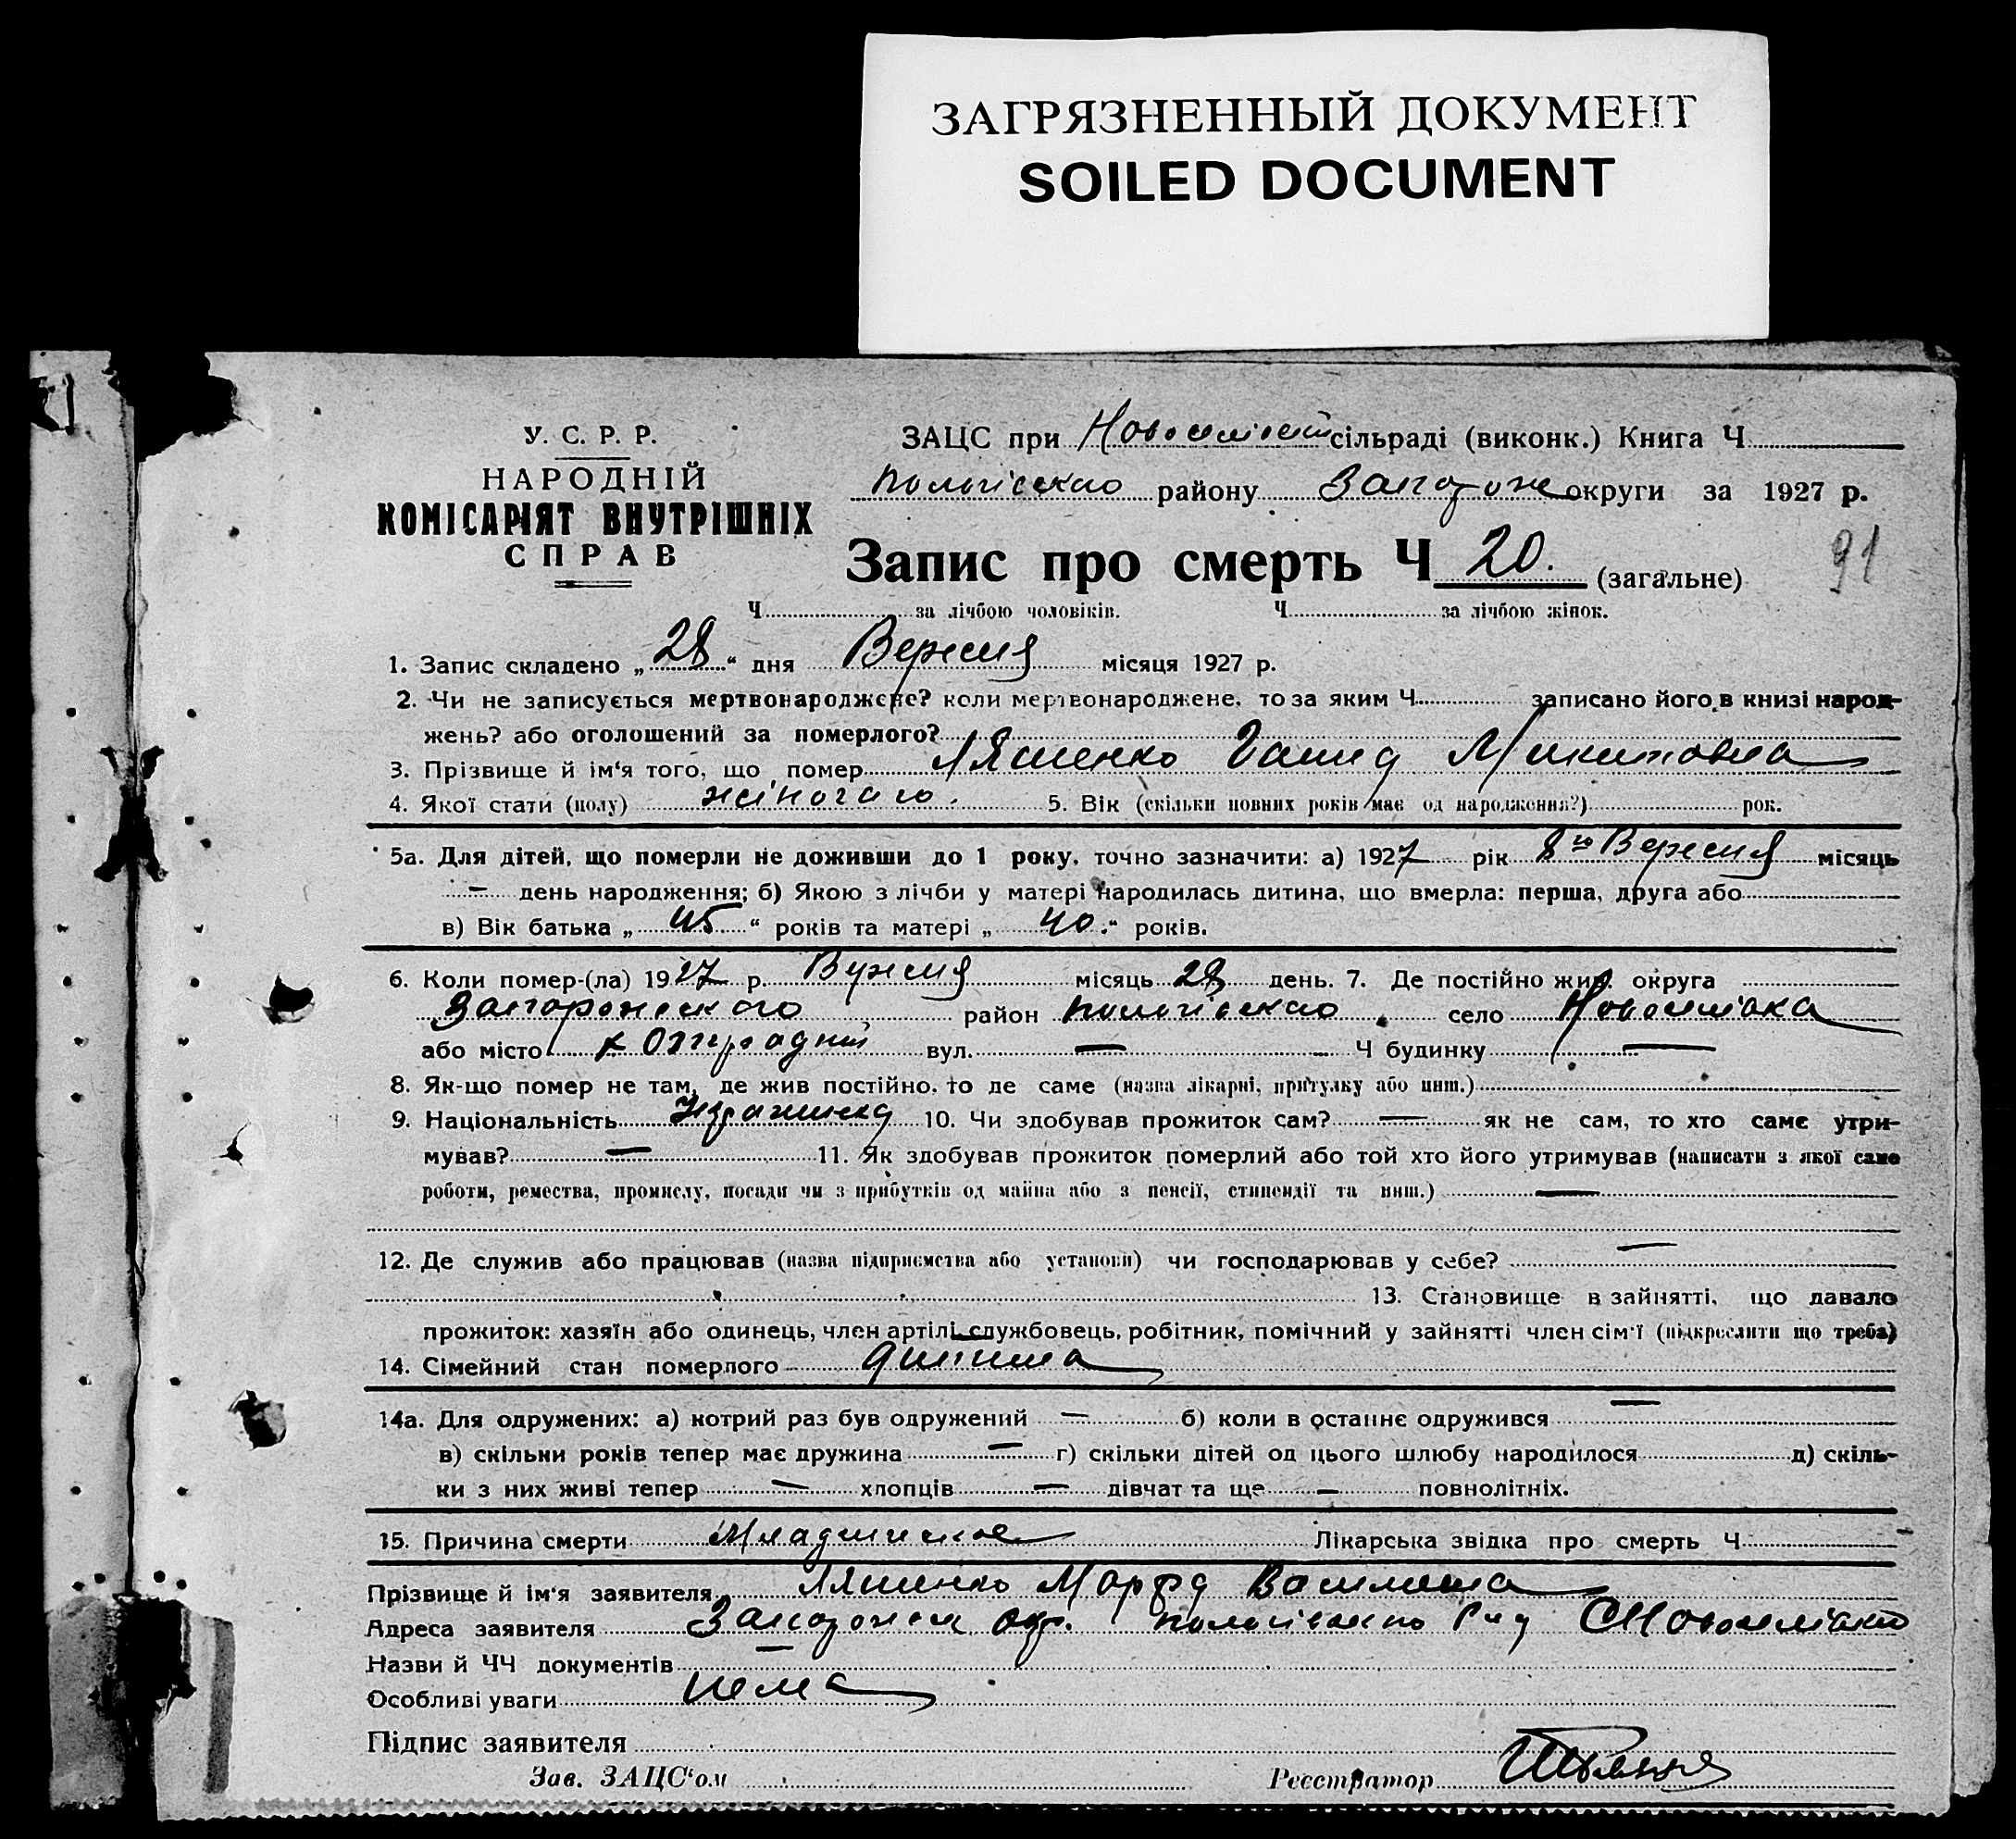 ЗАГРЯЗНЕННЫЙ ДОКУМЕНТ
SOILED DOCUMENT
У. С. Р. Р.
НАРОДНІЙ
КОМІСАРІЯТ ВНУТРІШНІХ
СПРАВ
ЗАЦС при Новоселівській сільраді (виконк.) Книга Ч
Пологівського району Запорож округи за 1927 р.
91
Запис про смерть Ч 20. (загальне)
Ч за лічбою чоловіків. Ч за лічбою жінок.
1. Запис складено „28“ дня Вересня місяця 1927 р.
2. Чи не записується мертвонароджене? коли мертвонароджене, то за яким Ч записано його в книзі народ-
жень? або оголошений за померлого?
3. Прізвище й ім‘я того, що помер Ляшенко Ганна Микитовна
4. Якої стати (полу) жіночого. 5. Вік (скільки повних років має од народження?) рок.
5а. Для дітей, що померли не доживши до 1 року, точно зазначити: а) 1927 рік 8го Вересня місяць
— день народження; б) Якою з лічби у матері народилась дитина, що вмерла: перша, друга або
в) Вік батька „45“ років та матері „40.“ років.
6. Коли помер-(ла) 1927 р. Вересня місяць 28 день. 7. Де постійно жив. округа
Запорожського район Пологівского село Новоселівка
або місто х Отрадний вул. — Ч будинку —
8. Як-що помер не там, де жив постійно, то де саме (назва лікарні, притулку або инш.)
9. Національність Українка 10. Чи здобував прожиток сам? — як не сам, то хто саме утри-
мував? — 11. Як здобував прожиток померлий або той хто його утримував (написати з якої саме
роботи, ремества, промислу, посади чи з прибутків од майна або з пенсії, стипендії та инш.) —
12. Де служив або працював (назва підприємства або установи) чи господарював у себе? —
13. Становище в зайнятті, що давало
прожиток: хазяїн або одинець, член артілі, службовець, робітник, помічний у зайнятті член сім‘ї (підкреслити що треба)
14. Сімейний стан померлого дитина
14а. Для одружених: а) котрий раз був одружений — б) коли в останнє одружився —
в) скільки років тепер має дружина — г) скільки дітей од цього шлюбу народилося д) скіль-
ки з них живі тепер — хлопців — дівчат та ще — повнолітніх.
15. Причина смерти Младическое Лікарська звідка про смерть Ч
Прізвище й ім‘я заявителя Ляшенко Марфа Василевна
Адреса заявителя Запорожск окр. Пологівського Рну С Новоселівка
Назви й ЧЧ документів —
Особливі уваги нема
Підпис заявителя
Зав. ЗАЦС‘ом Реєстратор